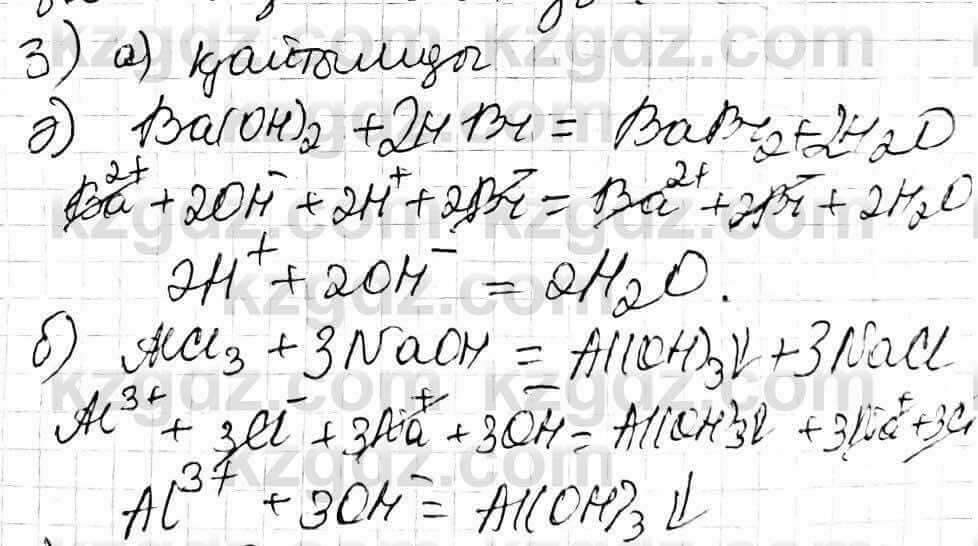 3) а) қайтымды
ә) Ba(OH)₂ + 2HBr = BaBr₂ + 2H₂O
Ba²⁺ + 2OH⁻ + 2H⁺ + 2Br⁻ = Ba²⁺ + 2Br⁻ + 2H₂O
2H⁺ + 2OH⁻ = 2H₂O.
б) AlCl₃ + 3NaOH = Al(OH)₃↓ + 3NaCl
Al³⁺ + 3Cl⁻ + 3Na⁺ + 3OH⁻ = Al(OH)₃↓ + 3Na⁺ + 3Cl
Al³⁺ + 3OH⁻ = Al(OH)₃↓